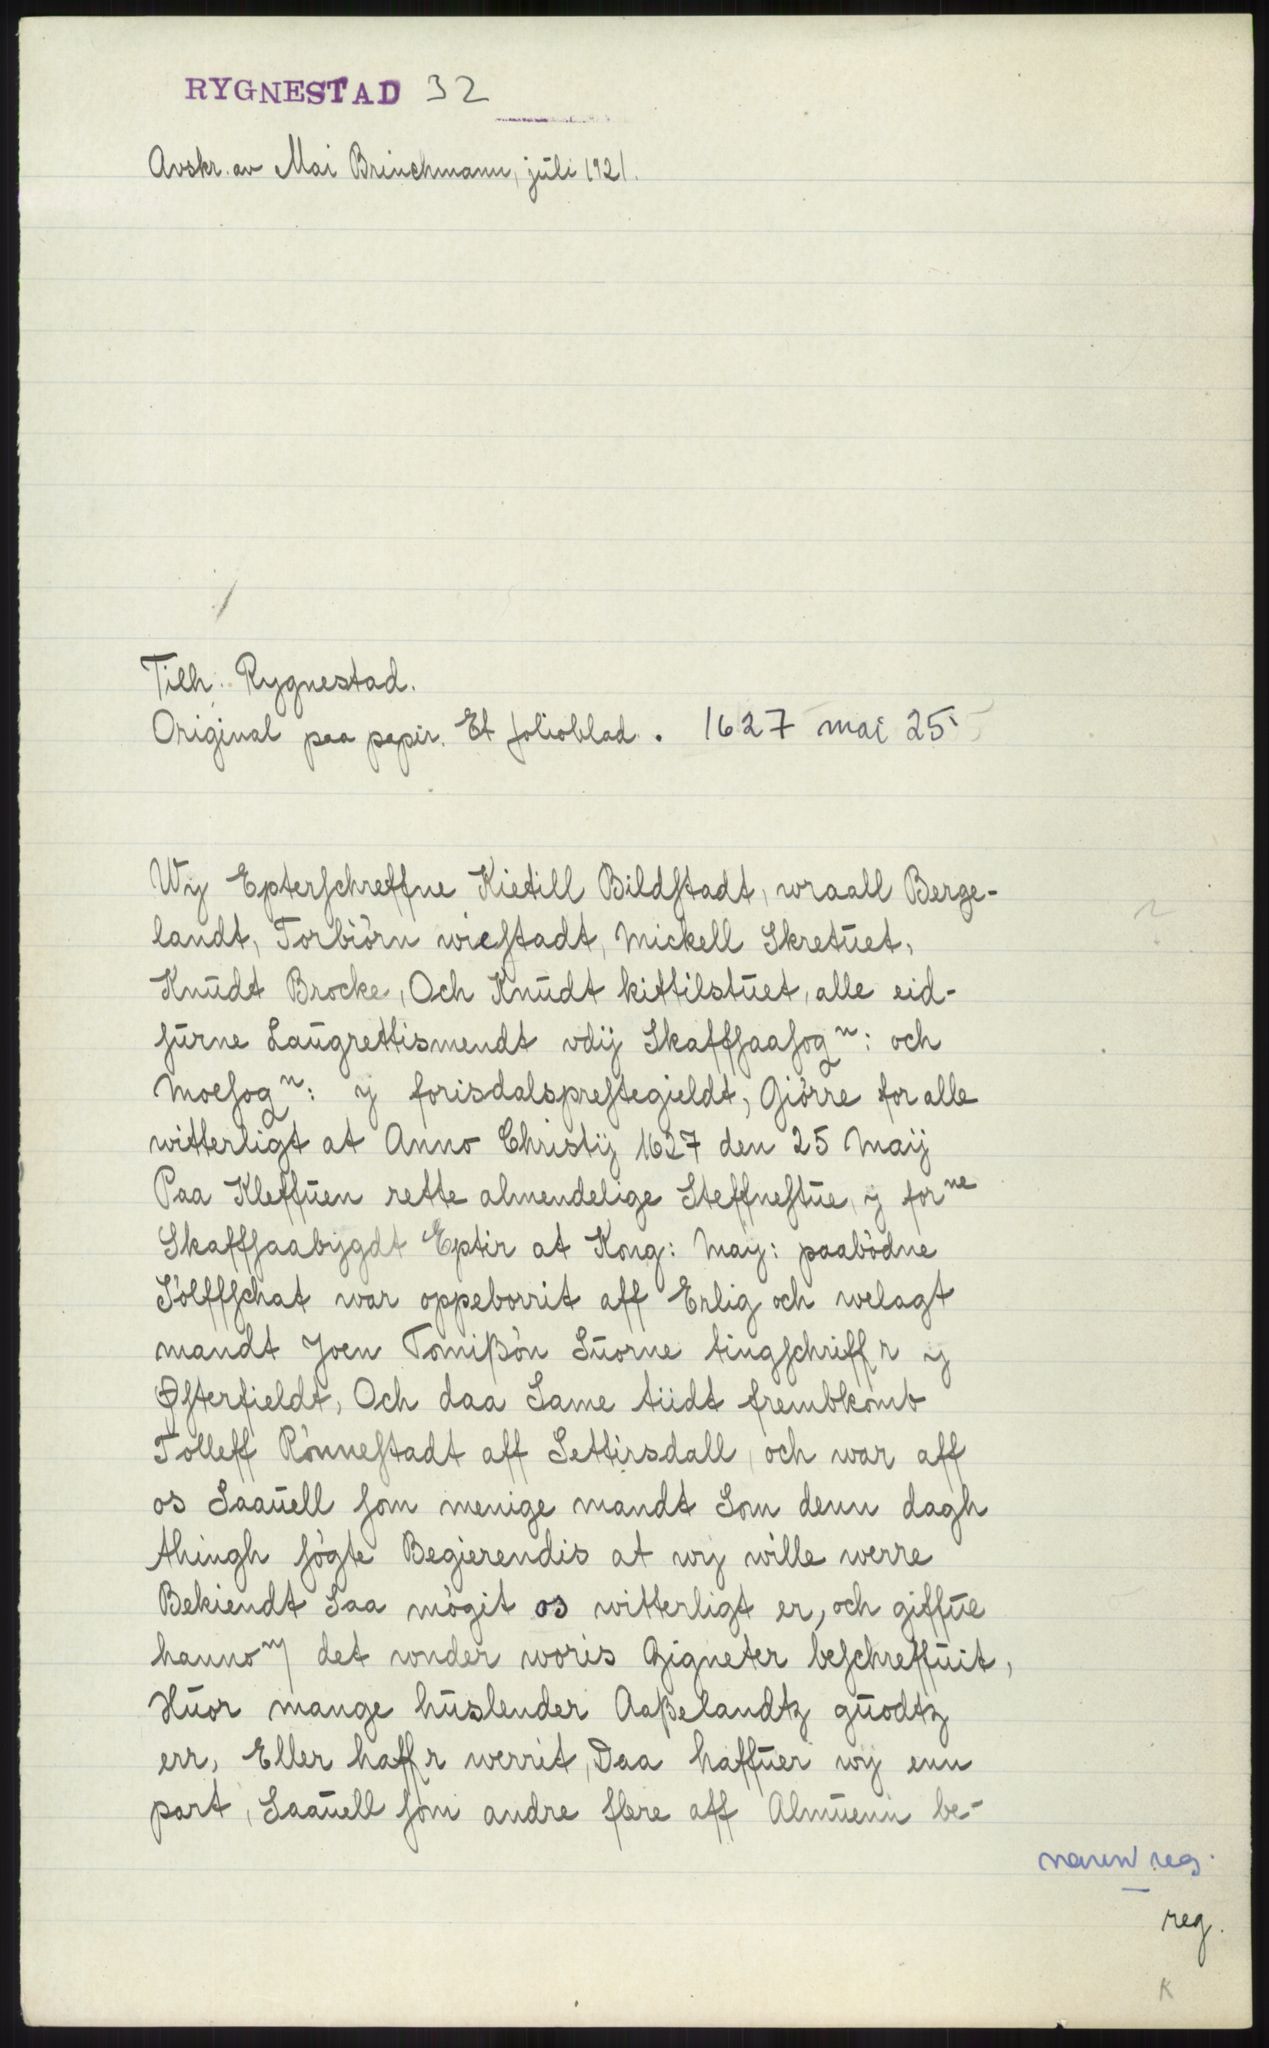 RYGNESTAD 32
Avskr. av Mai Brinchmann, juli 1921.
Tilh. Rygnestad.
Original paa papir. Et folioblad. 1627 mai 25
Wy Epterschreffne Kietill Bildstadt, wraall Berge-
landt, Torbiörn wiestadt, Mickell Skretuet,
Knudt Brocke, Och Knudt kittilstuet, alle eid-
surne Laugrettismendt vdij Skaffsaasogn: och
Moesogn: y forisdalsprestegieldt, Giörre for alle
witterligt at Anno Christij 1627 den 25 Maij
Paa Kleffuen rette almendelige Steffnestue, y forne
Skaffsaabygdt Eptir at Kong: May: paabödne
Sölffschat war oppeborrit aff Erlig och welagt
mandt Joen Tonißön Suorne tingschriffr y
Østerfieldt, Och daa Same tiidt frembkomb
Tolleff Rönnestadt aff Settirsdall, och war aff
os Saauell som menige mandt Som denn dagh
thingh sögte Begierendis at wy wille werre
Bekiendt Saa mögit os witterligt er, och giffue
hannom det wnder woris Zigneter beschreffuit,
Huor mange huslender Aaßelandtz guodtz
err, Eller haffr werrit, Daa haffuer wy enn
part, Saauell som andre flere aff Almuenn be-
navn reg.
reg.
K